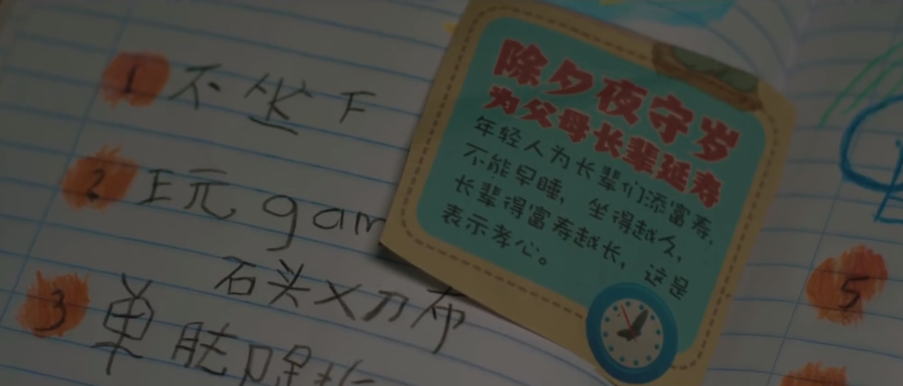 1 不坐下
2 王元 gam
石头 刀布
3 单
除夕夜守岁
为父母长辈延寿
年轻人为长辈们添富寿，
不能早睡，坐得越久，
长辈得富寿越长，这是
表示孝心。
5